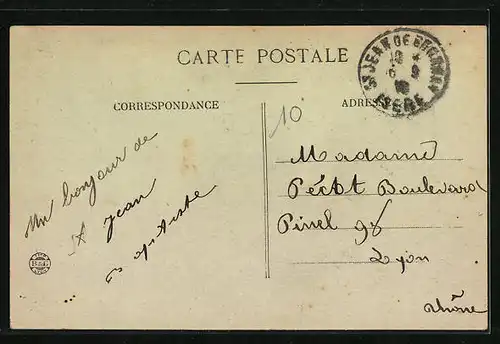 CARTE POSTALE
CORRESPONDANCE
ADRESSE
10
Un bonjour de
St Jean
Baptiste
Madame
Boulevard
Pinel 98
Lyon
Rhône
ST JEAN DE BOURNAY
ISERE